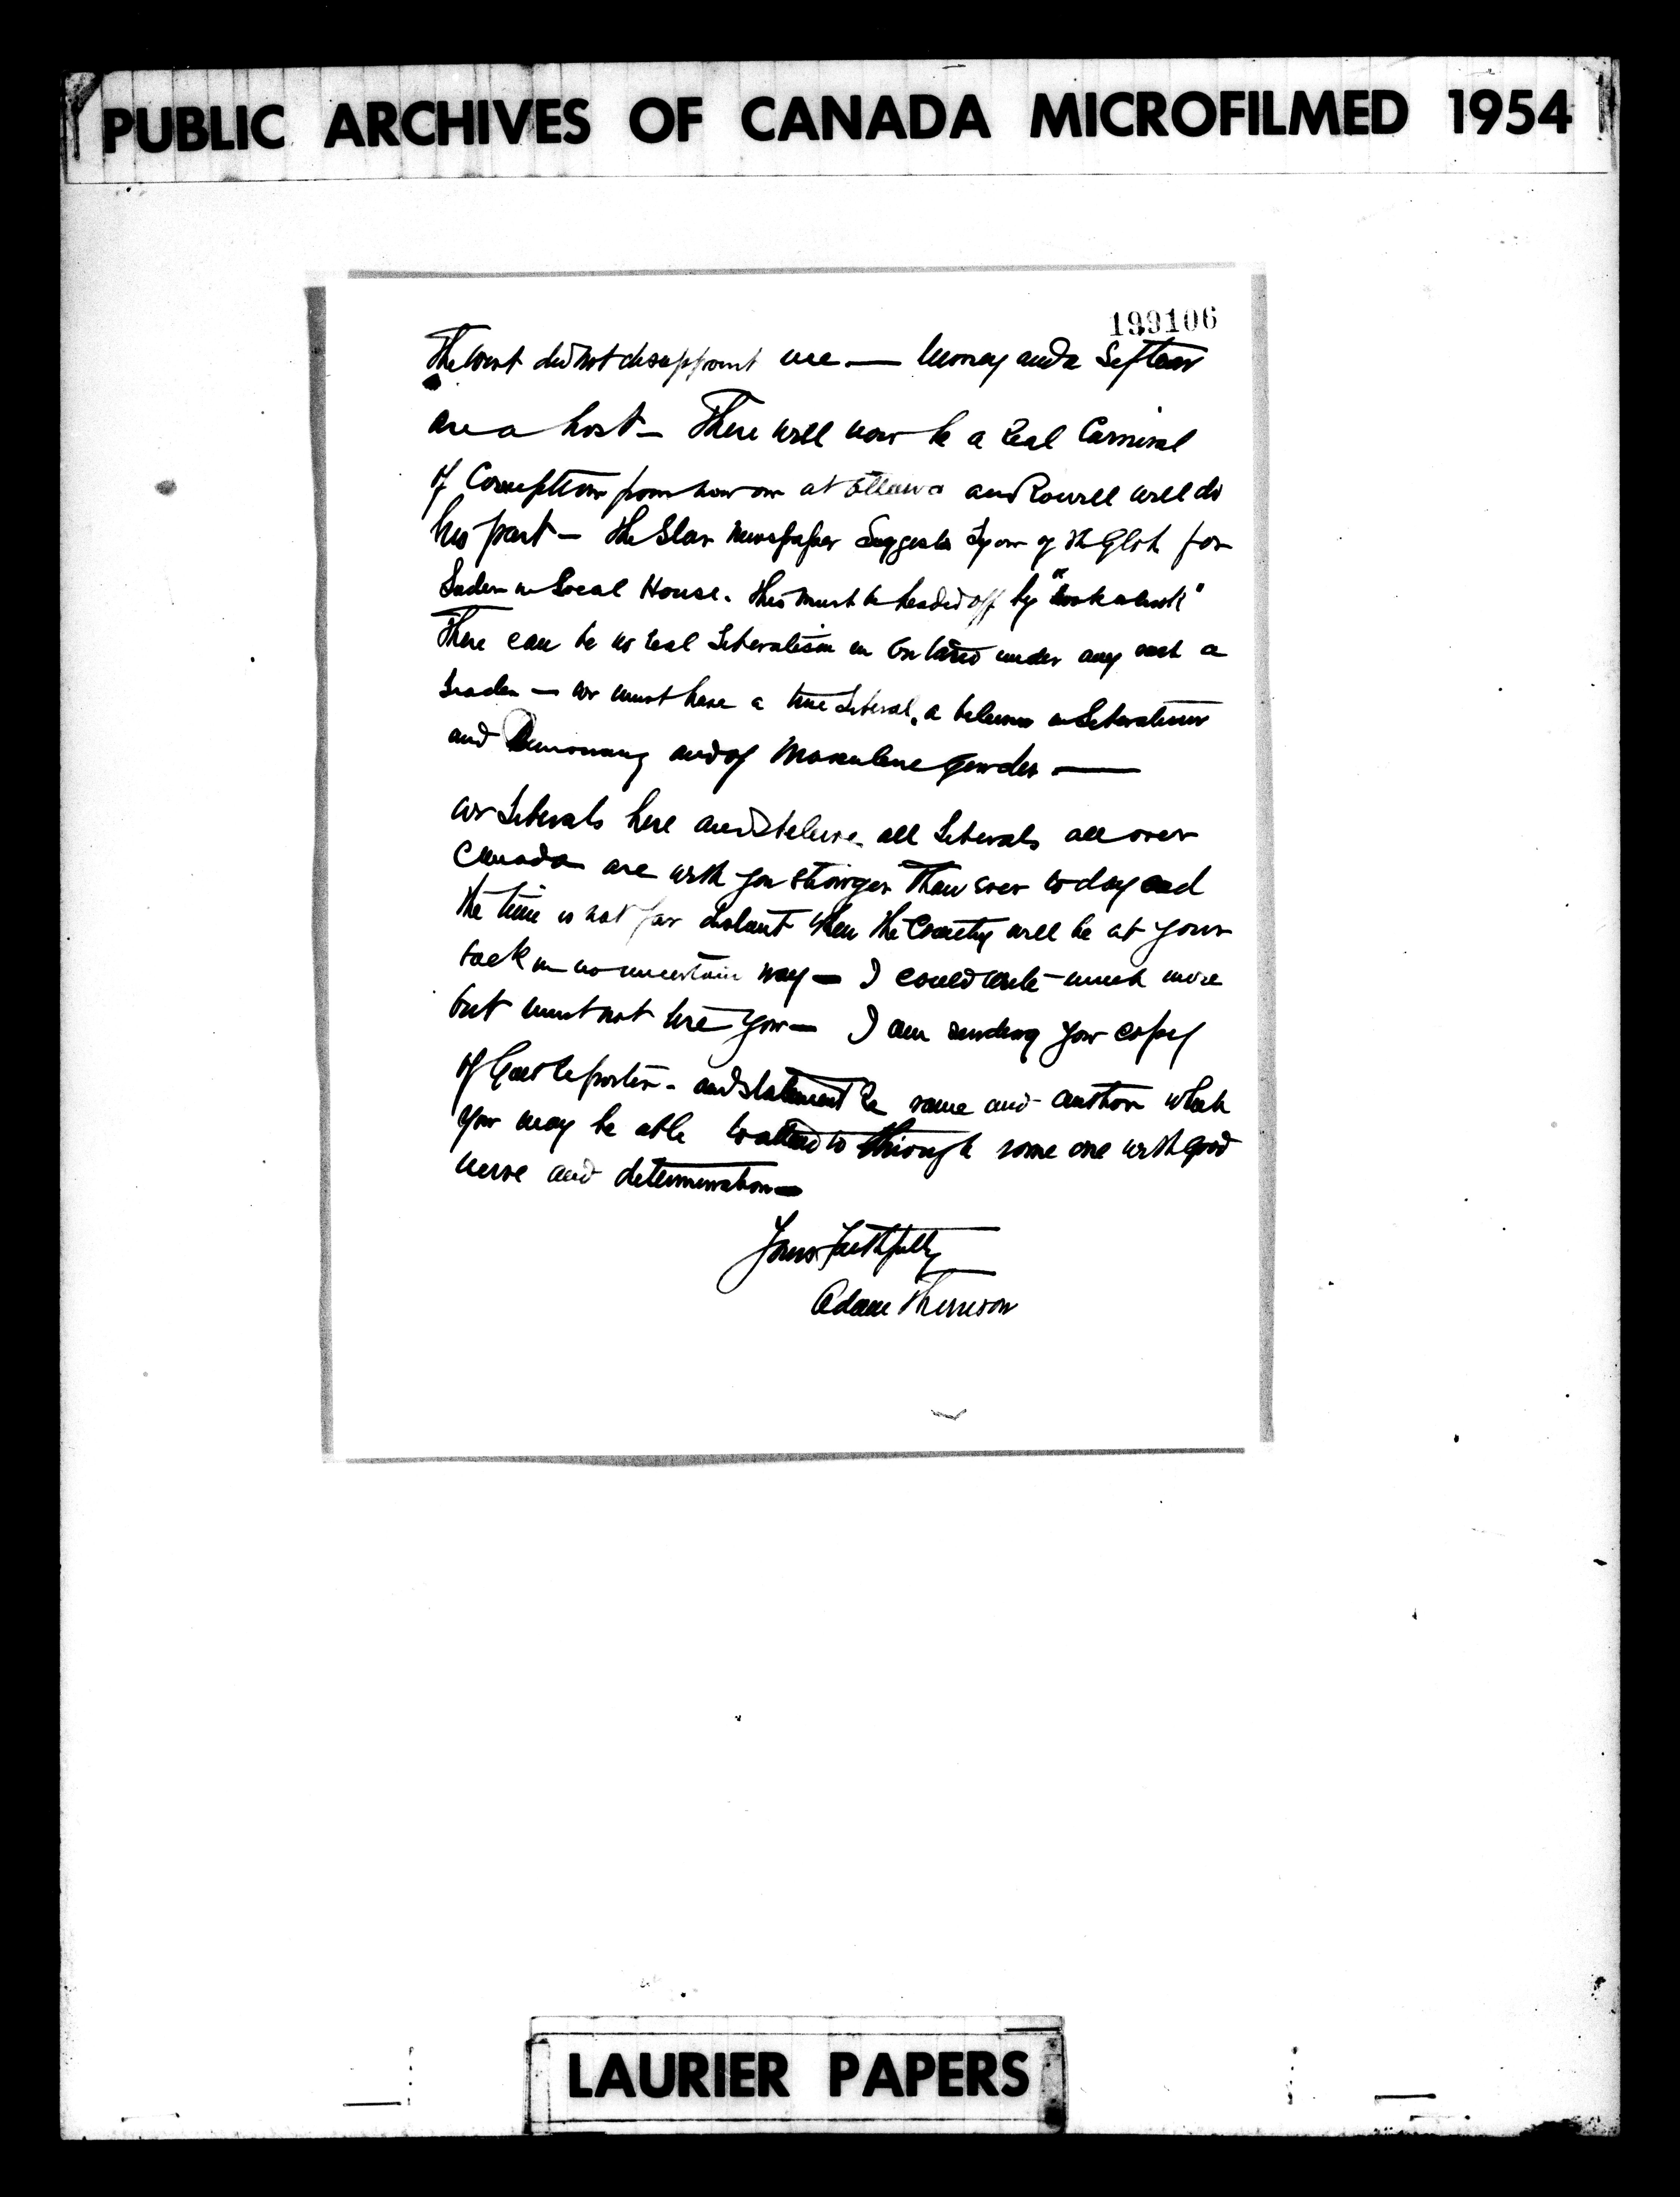 PUBLIC ARCHIVES OF CANADA MICROFILMED 1954
199106
The West did not disappoint me — Money and a Sifton
are a host — There will now be a real Carnival
of Corruption from now on at Ottawa and Rowell will do
his part — The Star Newspaper Suggests Lyon of the Globe for
Leader in Local House. This must be headed off by
There can be no real Liberalism in Ontario under any such a
Leader — we must have a true Liberal, a believer in Liberalism
and Democracy and of Masculine Gender —
We Liberals here and I believe all Liberals all over
Canada are with you stronger Than ever to day and
the time is not far distant when the Country will be at your
back in no uncertain way — I could write much more
but must not tire you — I am sending you copy
of Galt Reporter - and statement re same and author which
you may be able to attend to through some one with good
nerve and determination —
Yours Faithfully
Adam Thomson
LAURIER PAPERS